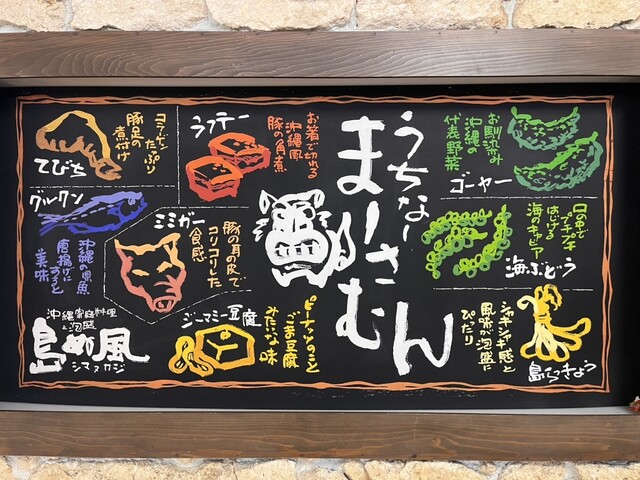 うちなー
まーさむん
お馴染み
沖縄の
代表野菜
ゴーヤー
口の中で
プチプチ
はじける
海のキャビア
海ぶどう
シャキシャキ感と
風味が泡盛に
ぴたり
島らっきょう
ラフテー
お箸で切れる
沖縄風
豚の角煮
コラーゲン
たっぷり
豚足の
煮付け
てびち
グルクン
沖縄の県魚
唐揚げにすると
美味
ミミガー
豚の耳の皮で
コリコリした
食感
ジーマミー豆腐
ピーナッツのこと
ごま豆腐
みたいな味
沖縄家庭料理
と泡盛
島ぬ風
シマヌカジ